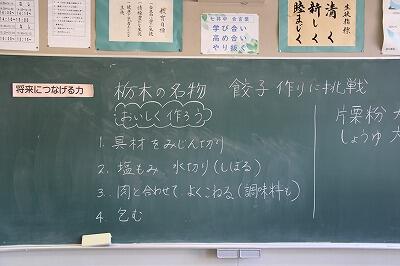 教育目標
七井中 合言葉
学び合い
高め合い
やり抜く
生活指標
清く
新しく
睦まじく
将来につなげる力
栃木の名物 餃子作りに挑戦
おいしく作ろう
1. 具材をみじん切り
2. 塩もみ 水切り(しぼる)
3. 肉と合わせて よくこねる(調味料も)
4. 包む
片栗粉 大
しょうゆ 大